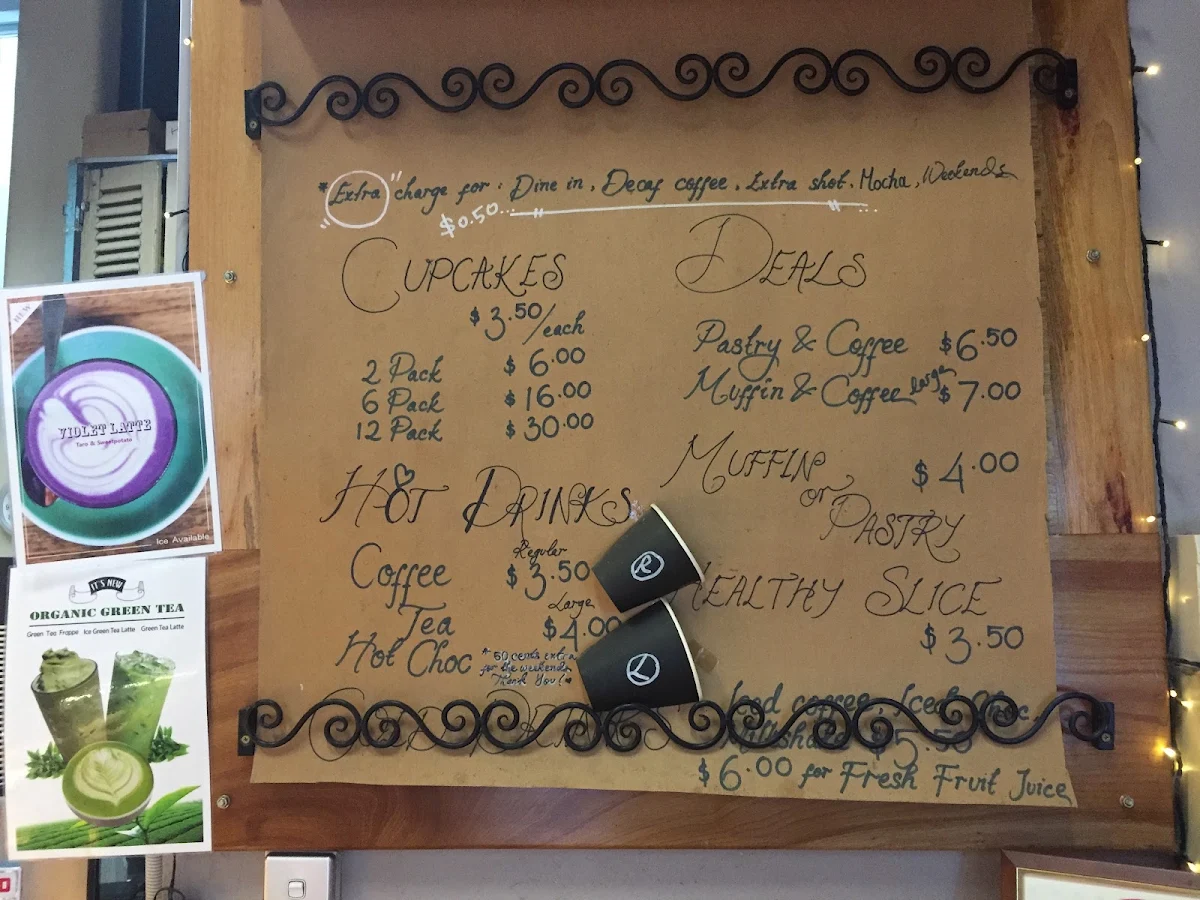 * "Extra" charge for : Dine in, Decaf coffee, Extra shot, Mocha, Weekends
$0.50...
CUPCAKES
$3.50/each
2 Pack $6.00
6 Pack $16.00
12 Pack $30.00
HOT DRINKS
Regular
Coffee $3.50
Large
Tea $4.00
Hot Choc
* 50 cents extra
for the weekends
Thank You
COLD DRINKS
DEALS
Pastry & Coffee $6.50
Muffin & Coffee large $7.00
MUFFIN $4.00
or
PASTRY
HEALTHY SLICE
$3.50
Iced coffee, Iced Choc
Milkshake $5.50
$6.00 for Fresh Fruit Juice
R
L
NEW
VIOLET LATTE
Taro & Sweetpotato
Ice Available
IT'S NEW
ORGANIC GREEN TEA
Green Tea Frappe Ice Green Tea Latte Green Tea Latte